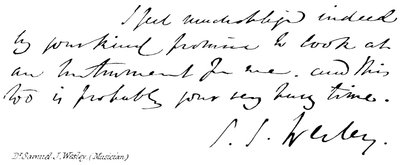 I feel much obliged indeed
by your kind promise to look at
an Instrument for me. and this
too is probably your very busy time.
S. S. Wesley.
Dr. Samuel S. Wesley. (Musician)